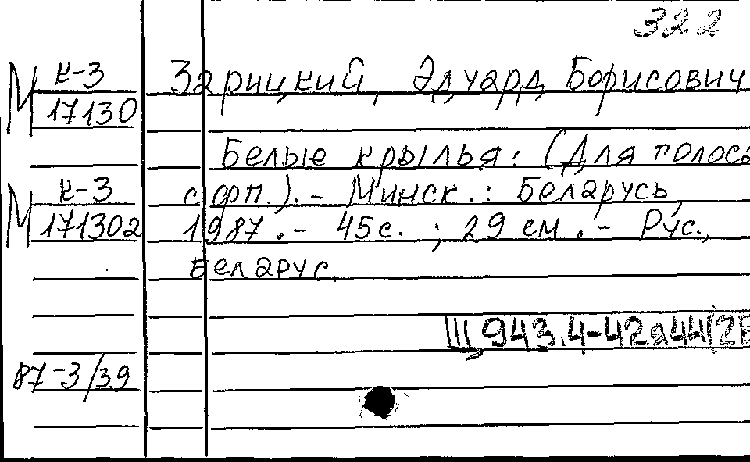 322
М к-3 Зарицкий, Эдуард Борисович
17130
Белые крылья: (Для голоса
М к-3 с фп.). - Минск.: Беларусь,
171302 1987. - 45с. ; 29 см. - Рус.,
беларус.
Щ943.4-42я44(2Б
87-3/39